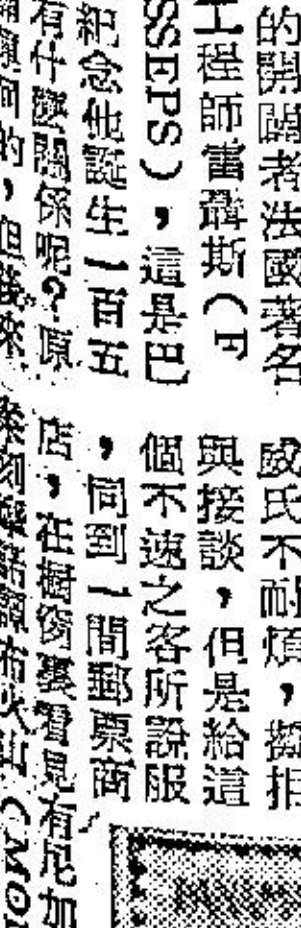 的開闢者法國著名
工程師雷斯（F
SSEPS），這是巴
紀念他誕生一百五
有什麼關係呢？原
的，但後來
威氏不耐煩，擬拒
與接談，但是給這
個不速之客所說服
，同到一間郵票商
店，在櫥窗裏看見有尼加
布火山（MO